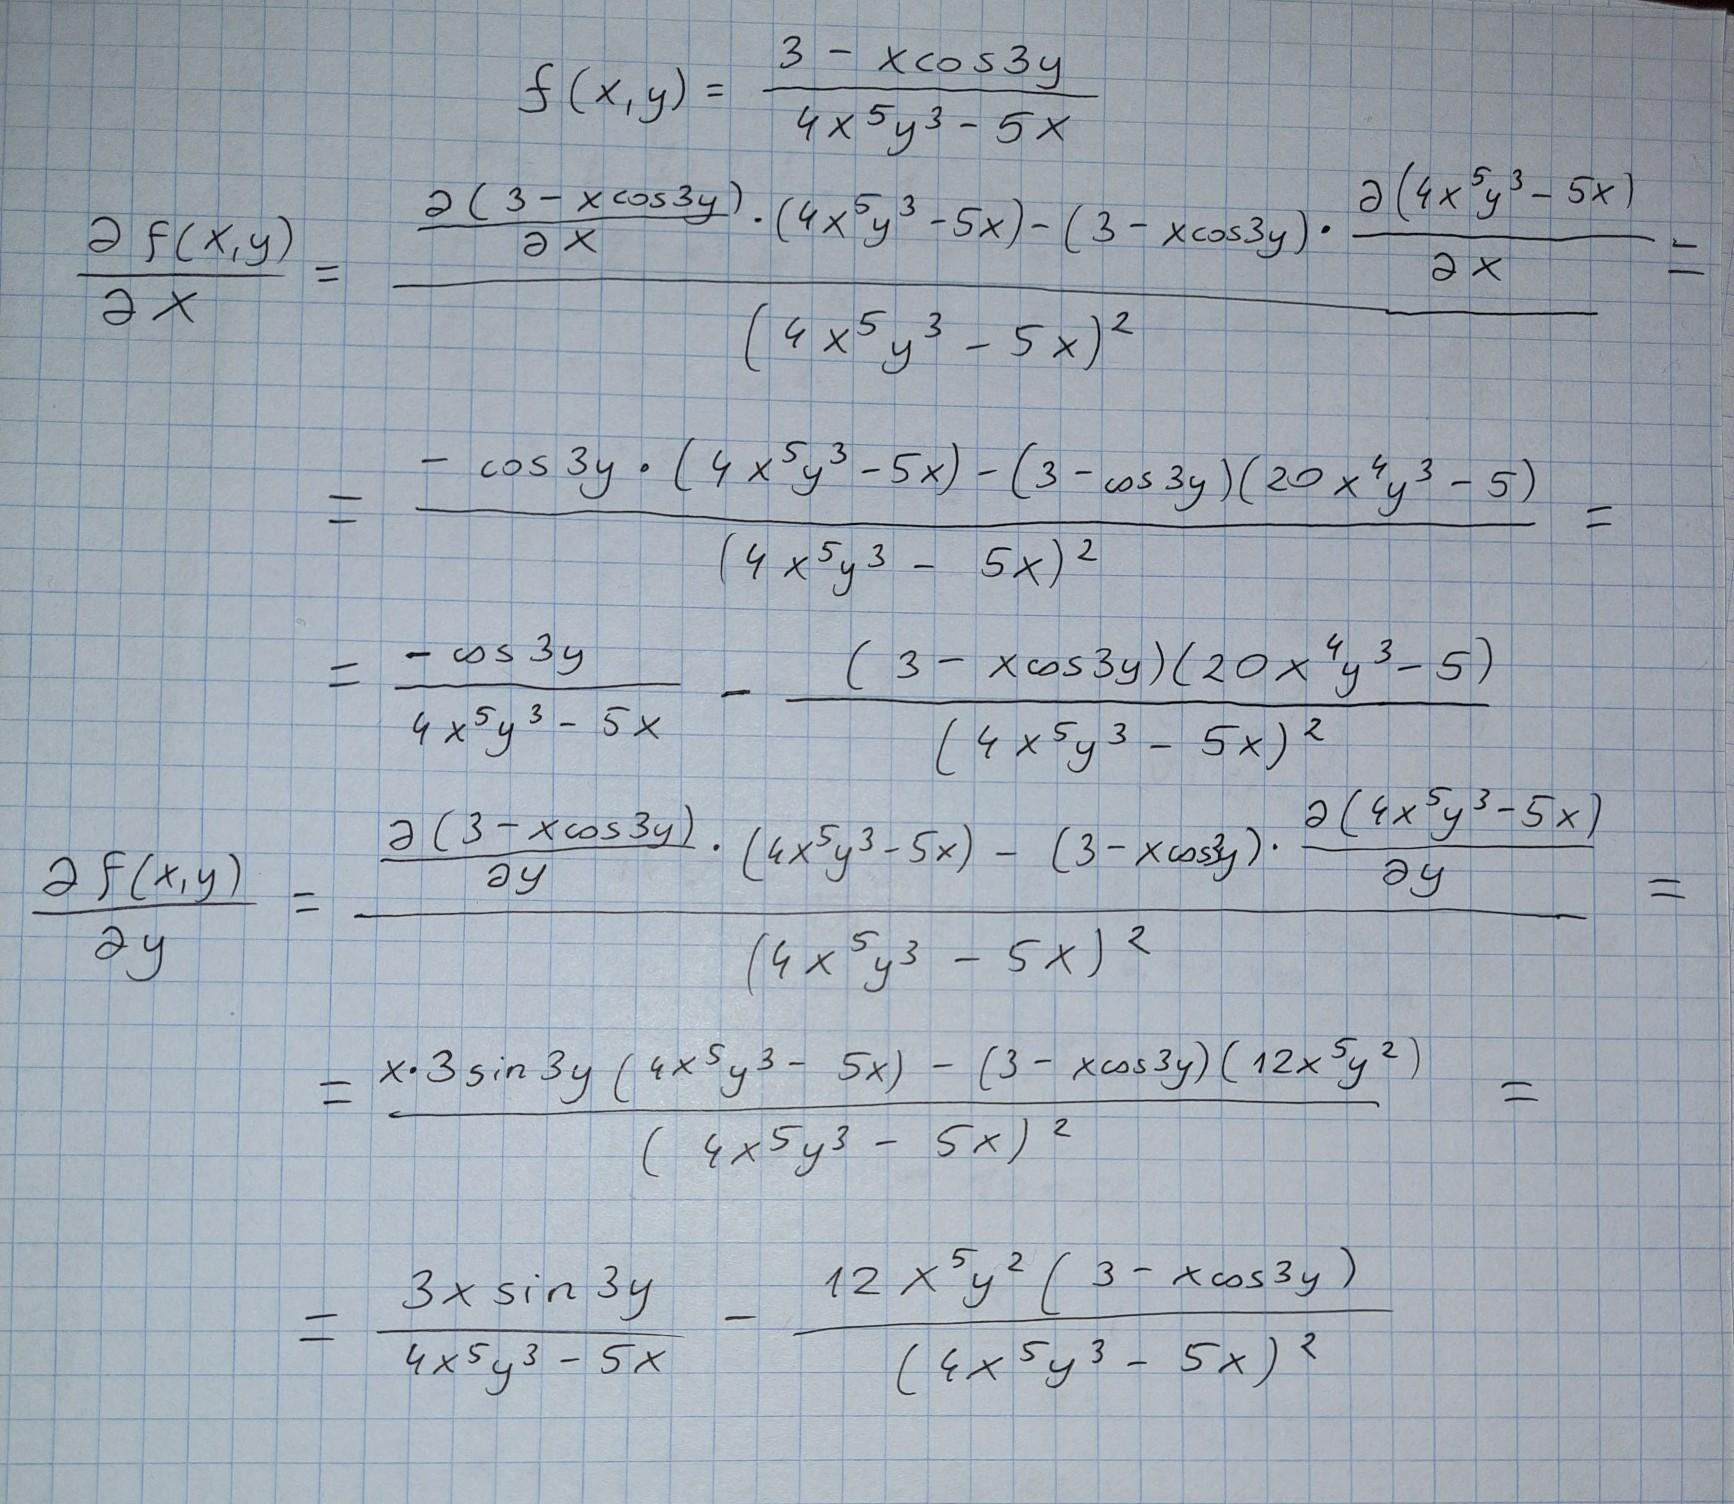 f(x,y) = (3 - xcos3y) / (4x⁵y³ - 5x)
∂f(x,y)/∂x = (∂(3 - xcos3y)/∂x · (4x⁵y³ - 5x) - (3 - xcos3y) · ∂(4x⁵y³ - 5x)/∂x) / (4x⁵y³ - 5x)² =
= (- cos3y · (4x⁵y³ - 5x) - (3 - cos3y)(20x⁴y³ - 5)) / (4x⁵y³ - 5x)² =
= (- cos3y) / (4x⁵y³ - 5x) - ((3 - xcos3y)(20x⁴y³ - 5)) / (4x⁵y³ - 5x)²
∂f(x,y)/∂y = (∂(3 - xcos3y)/∂y · (4x⁵y³ - 5x) - (3 - xcos3y) · ∂(4x⁵y³ - 5x)/∂y) / (4x⁵y³ - 5x)² =
= (x·3sin3y(4x⁵y³ - 5x) - (3 - xcos3y)(12x⁵y²)) / (4x⁵y³ - 5x)² =
= (3x sin3y) / (4x⁵y³ - 5x) - (12x⁵y²(3 - xcos3y)) / (4x⁵y³ - 5x)²